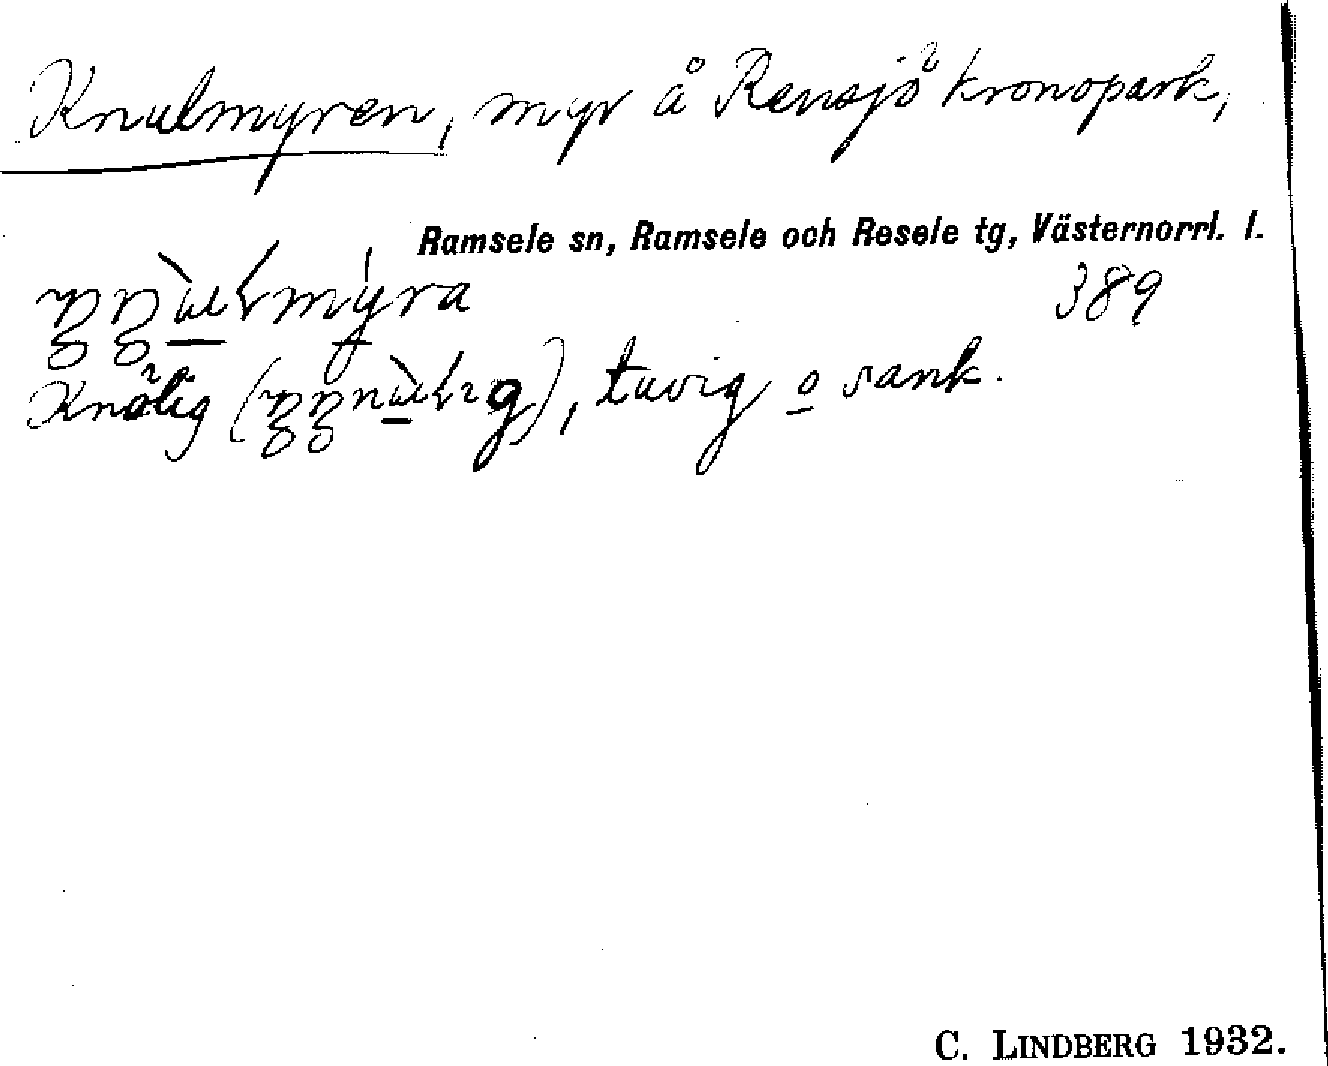 Knulmyren, myr å Rensjö kronopark,
Ramsele sn, Ramsele och Resele tg, Västernorrl. l.
myra 389
Knölig, tuvig o sank.
C. LINDBERG 1932.